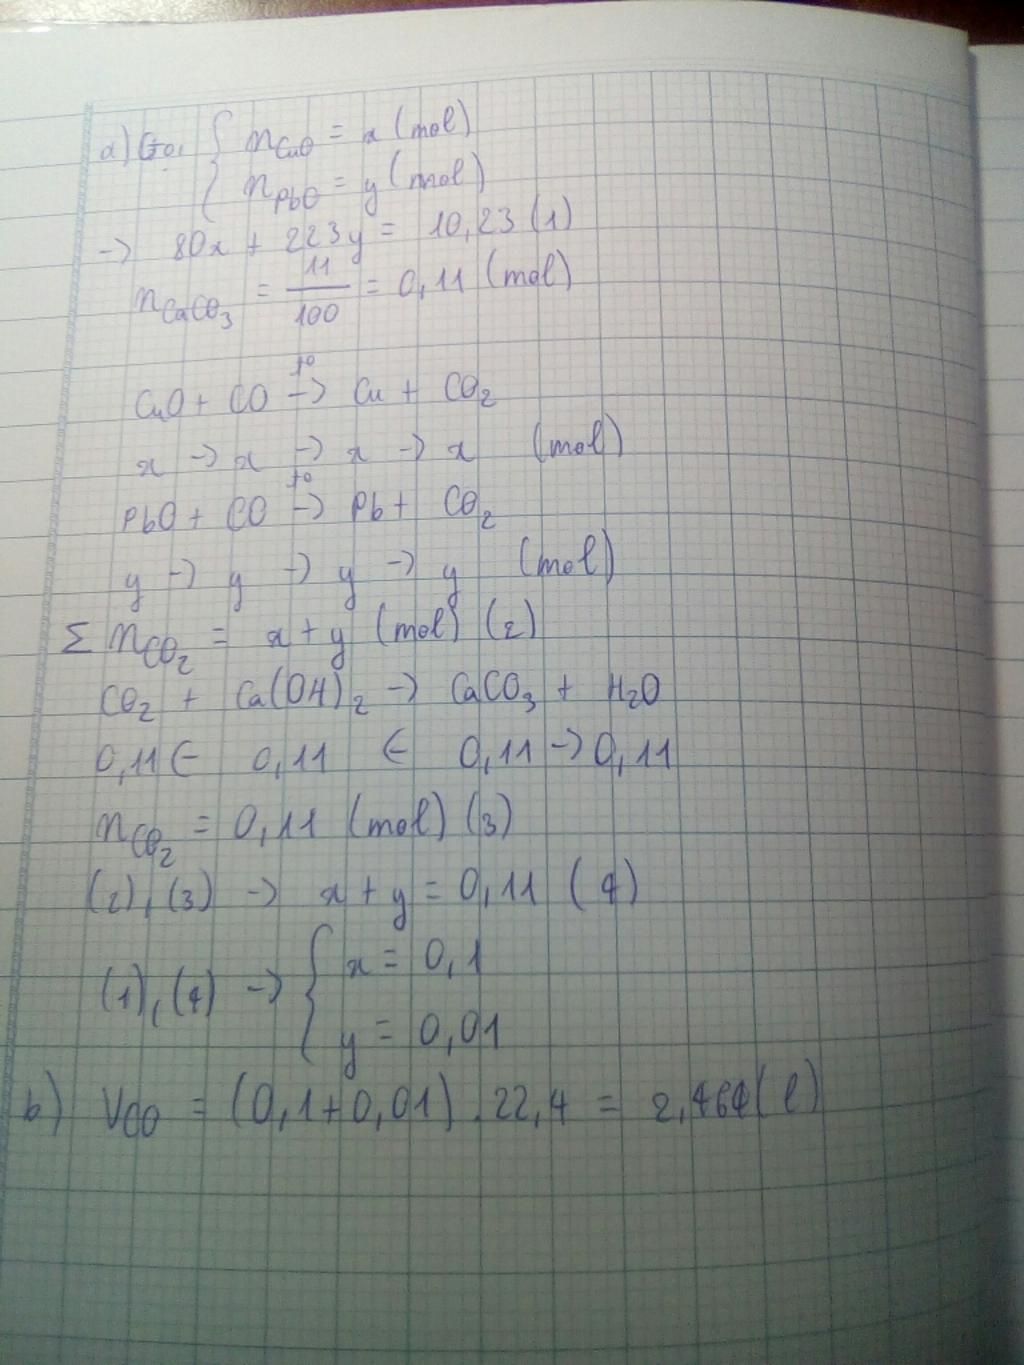 a) Gọi { nCuO = x (mol)
{ nPbO = y (mol)
-> 80x + 223y = 10,23 (1)
nCaCO₃ = 11/100 = 0,11 (mol)
CuO + CO -t°-> Cu + CO₂
x -> x -> x -> x (mol)
PbO + CO -t°-> Pb + CO₂
y -> y -> y -> y (mol)
Σ nCO₂ = x + y (mol) (2)
CO₂ + Ca(OH)₂ -> CaCO₃ + H₂O
0,11 ← 0,11 ← 0,11 -> 0,11
nCO₂ = 0,11 (mol) (3)
(2), (3) -> x + y = 0,11 (4)
(1), (4) -> { x = 0,1
{ y = 0,01
b) VCO = (0,1 + 0,01) . 22,4 = 2,464 (l)